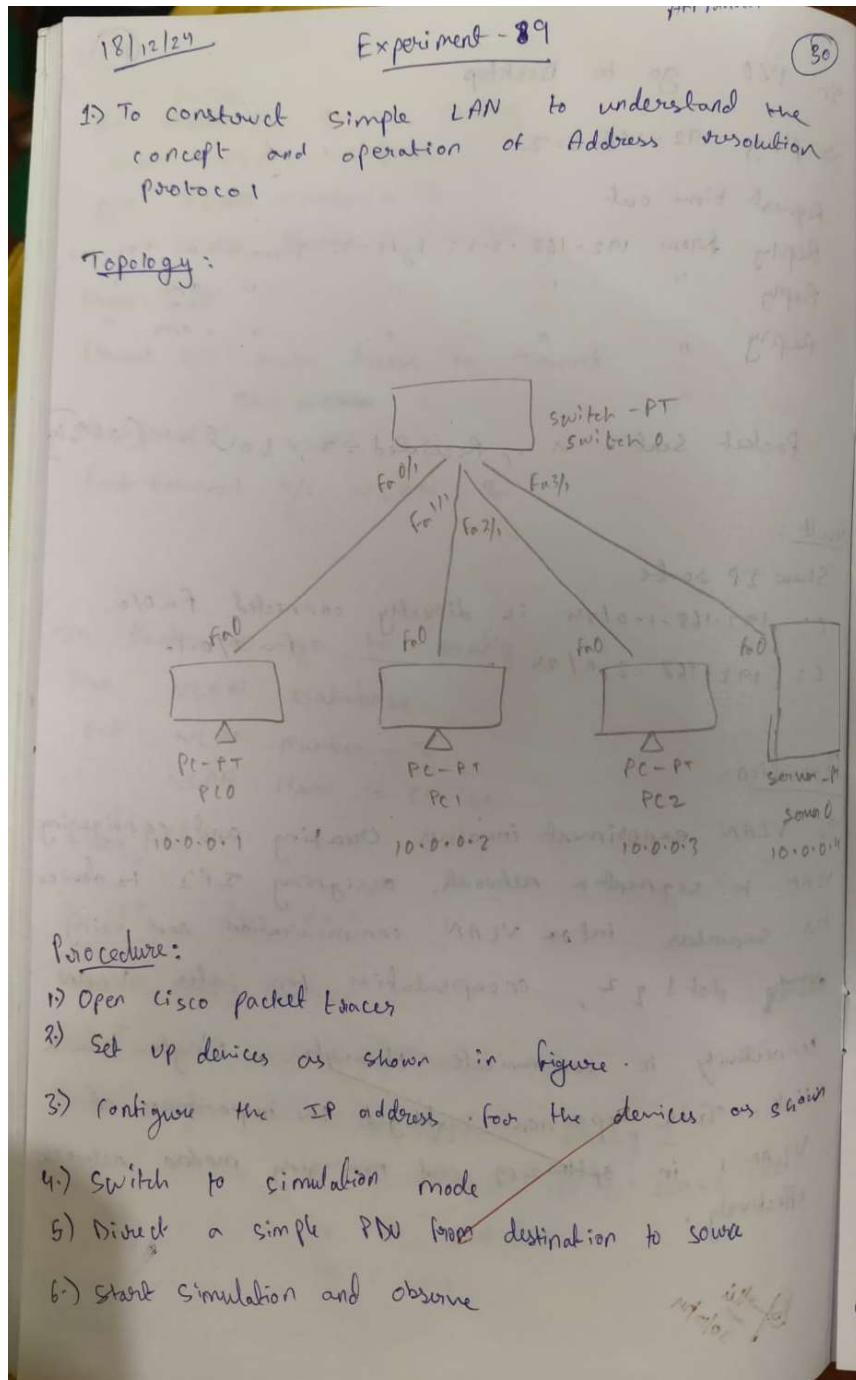 18/12/24
Experiment - 9
30
1.) To construct simple LAN to understand the
concept and operation of Address resolution
protocol
Topology:
switch-PT
switch 0
Fa0/1
Fa1/1
Fa2/1
Fa3/1
Fa0
Fa0
Fa0
Fa0
PC-PT
PC0
10.0.0.1
PC-PT
PC1
10.0.0.2
PC-PT
PC2
10.0.0.3
10.0.0.4
Procedure:
1.) Open Cisco packet tracer
2.) Set up devices as shown in figure.
3.) Configure the IP address for the devices as shown
4.) Switch to simulation mode
5) Direct a simple PDU from destination to source
6.) Start simulation and observe